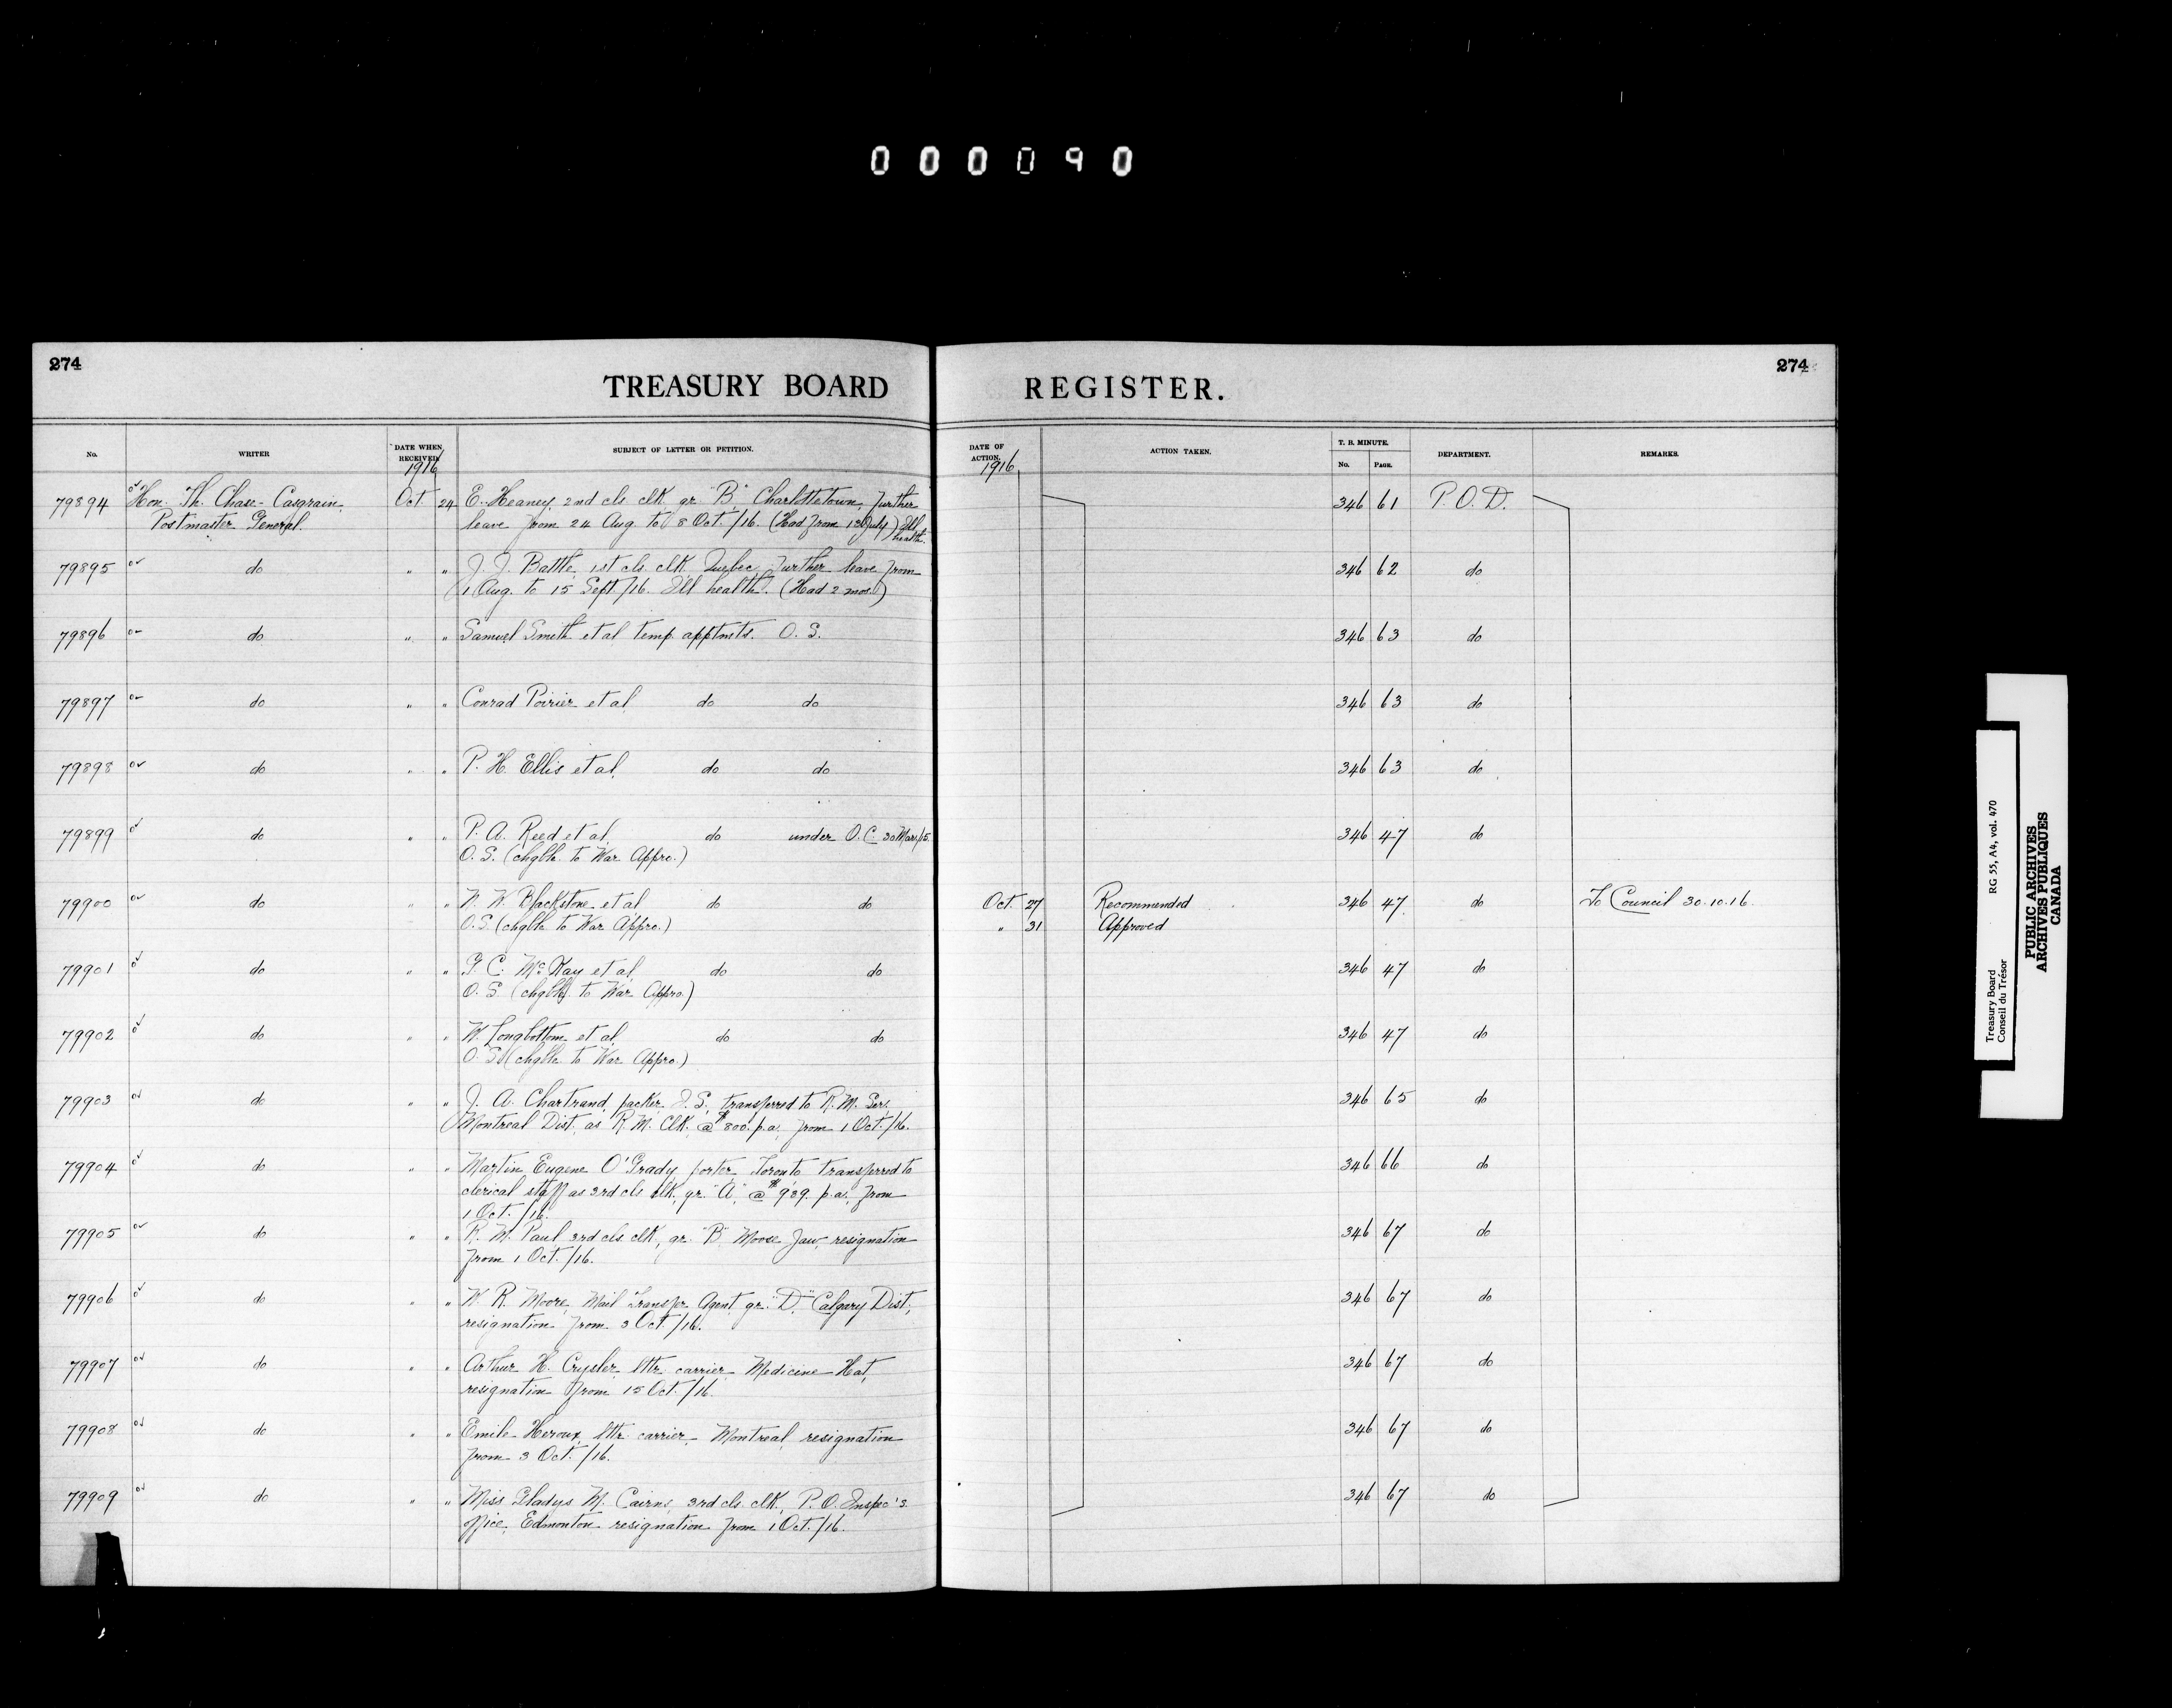 000090
274
TREASURY BOARD REGISTER.
274
No.
WRITER
DATE WHEN RECEIVED
1916
SUBJECT OF LETTER OR PETITION.
DATE OF ACTION.
1916
ACTION TAKEN.
T. B. MINUTE.
No. PAGE.
DEPARTMENT.
REMARKS.
79894 Hon. Th. Chase-Casgrain, Oct. 24 E. Heaney, 2nd cls clk gr "B" Charlottetown, further 346 61 P.O.D.
Postmaster General. leave from 24 Aug. to 8 Oct./16. (Had from 13 July) Ill health.
79895 do " " J. J. Battle, 1st cls. clk Quebec, further leave from 346 62 do
1 Aug. to 15 Sept/16. Ill health. (Had 2 mos.)
79896 do " " Samuel Smith et al temp apptmts. O. S. 346 63 do
79897 do " " Conrad Poirier et al do do 346 63 do
79898 do " " P. H. Ellis et al, do do 346 63 do
79899 do " " P. A. Reed et al, do under O.C. 30 Mar/15. 346 47 do
O. S. (chgble to War Appro.)
79900 do " " W. Blackstone et al do do Oct. 27 Recommended 346 47 do To Council 30.10.16.
O.S. (chgble to War Appro.) " 31 Approved
79901 do " " C. McKay et al, do do 346 47 do
O. S. (chgble to War Appro.)
79902 do " " W. Longbottom et al do do 346 47 do
O. S. (chgble to War Appro.)
79903 do " " J. A. Chartrand, packer, I. S., transferred to R. M. Ser. 346 65 do
Montreal Dist. as R. M. Clk. @ $800. p.a. from 1 Oct./16.
79904 do " " Martin Eugene O'Grady, porter, Toronto transferred to 346 66 do
clerical staff as 3rd cls clk, gr. "A", @ $939. p.a. from
1 Oct./16.
79905 do " " R. M. Paul 3rd cls clk, gr. "B" Moose Jaw, resignation 346 67 do
from 1 Oct./16.
79906 do " " W. R. Moore, Mail Transfer Agent, gr. "D," Calgary Dist, 346 67 do
resignation from 3 Oct./16.
79907 do " " Arthur H. Crysler lttr. carrier Medicine Hat, 346 67 do
resignation from 15 Oct./16.
79908 do " " Emile Heroux, lttr. carrier, Montreal, resignation 346 67 do
from 3 Oct./16.
79909 do " " Miss Gladys M. Cairns, 3rd cls. clk, P. O. Inspec's 346 67 do
office, Edmonton resignation from 1 Oct./16.
Treasury Board RG 55, A4, vol. 470
Conseil du Trésor
PUBLIC ARCHIVES
ARCHIVES PUBLIQUES
CANADA